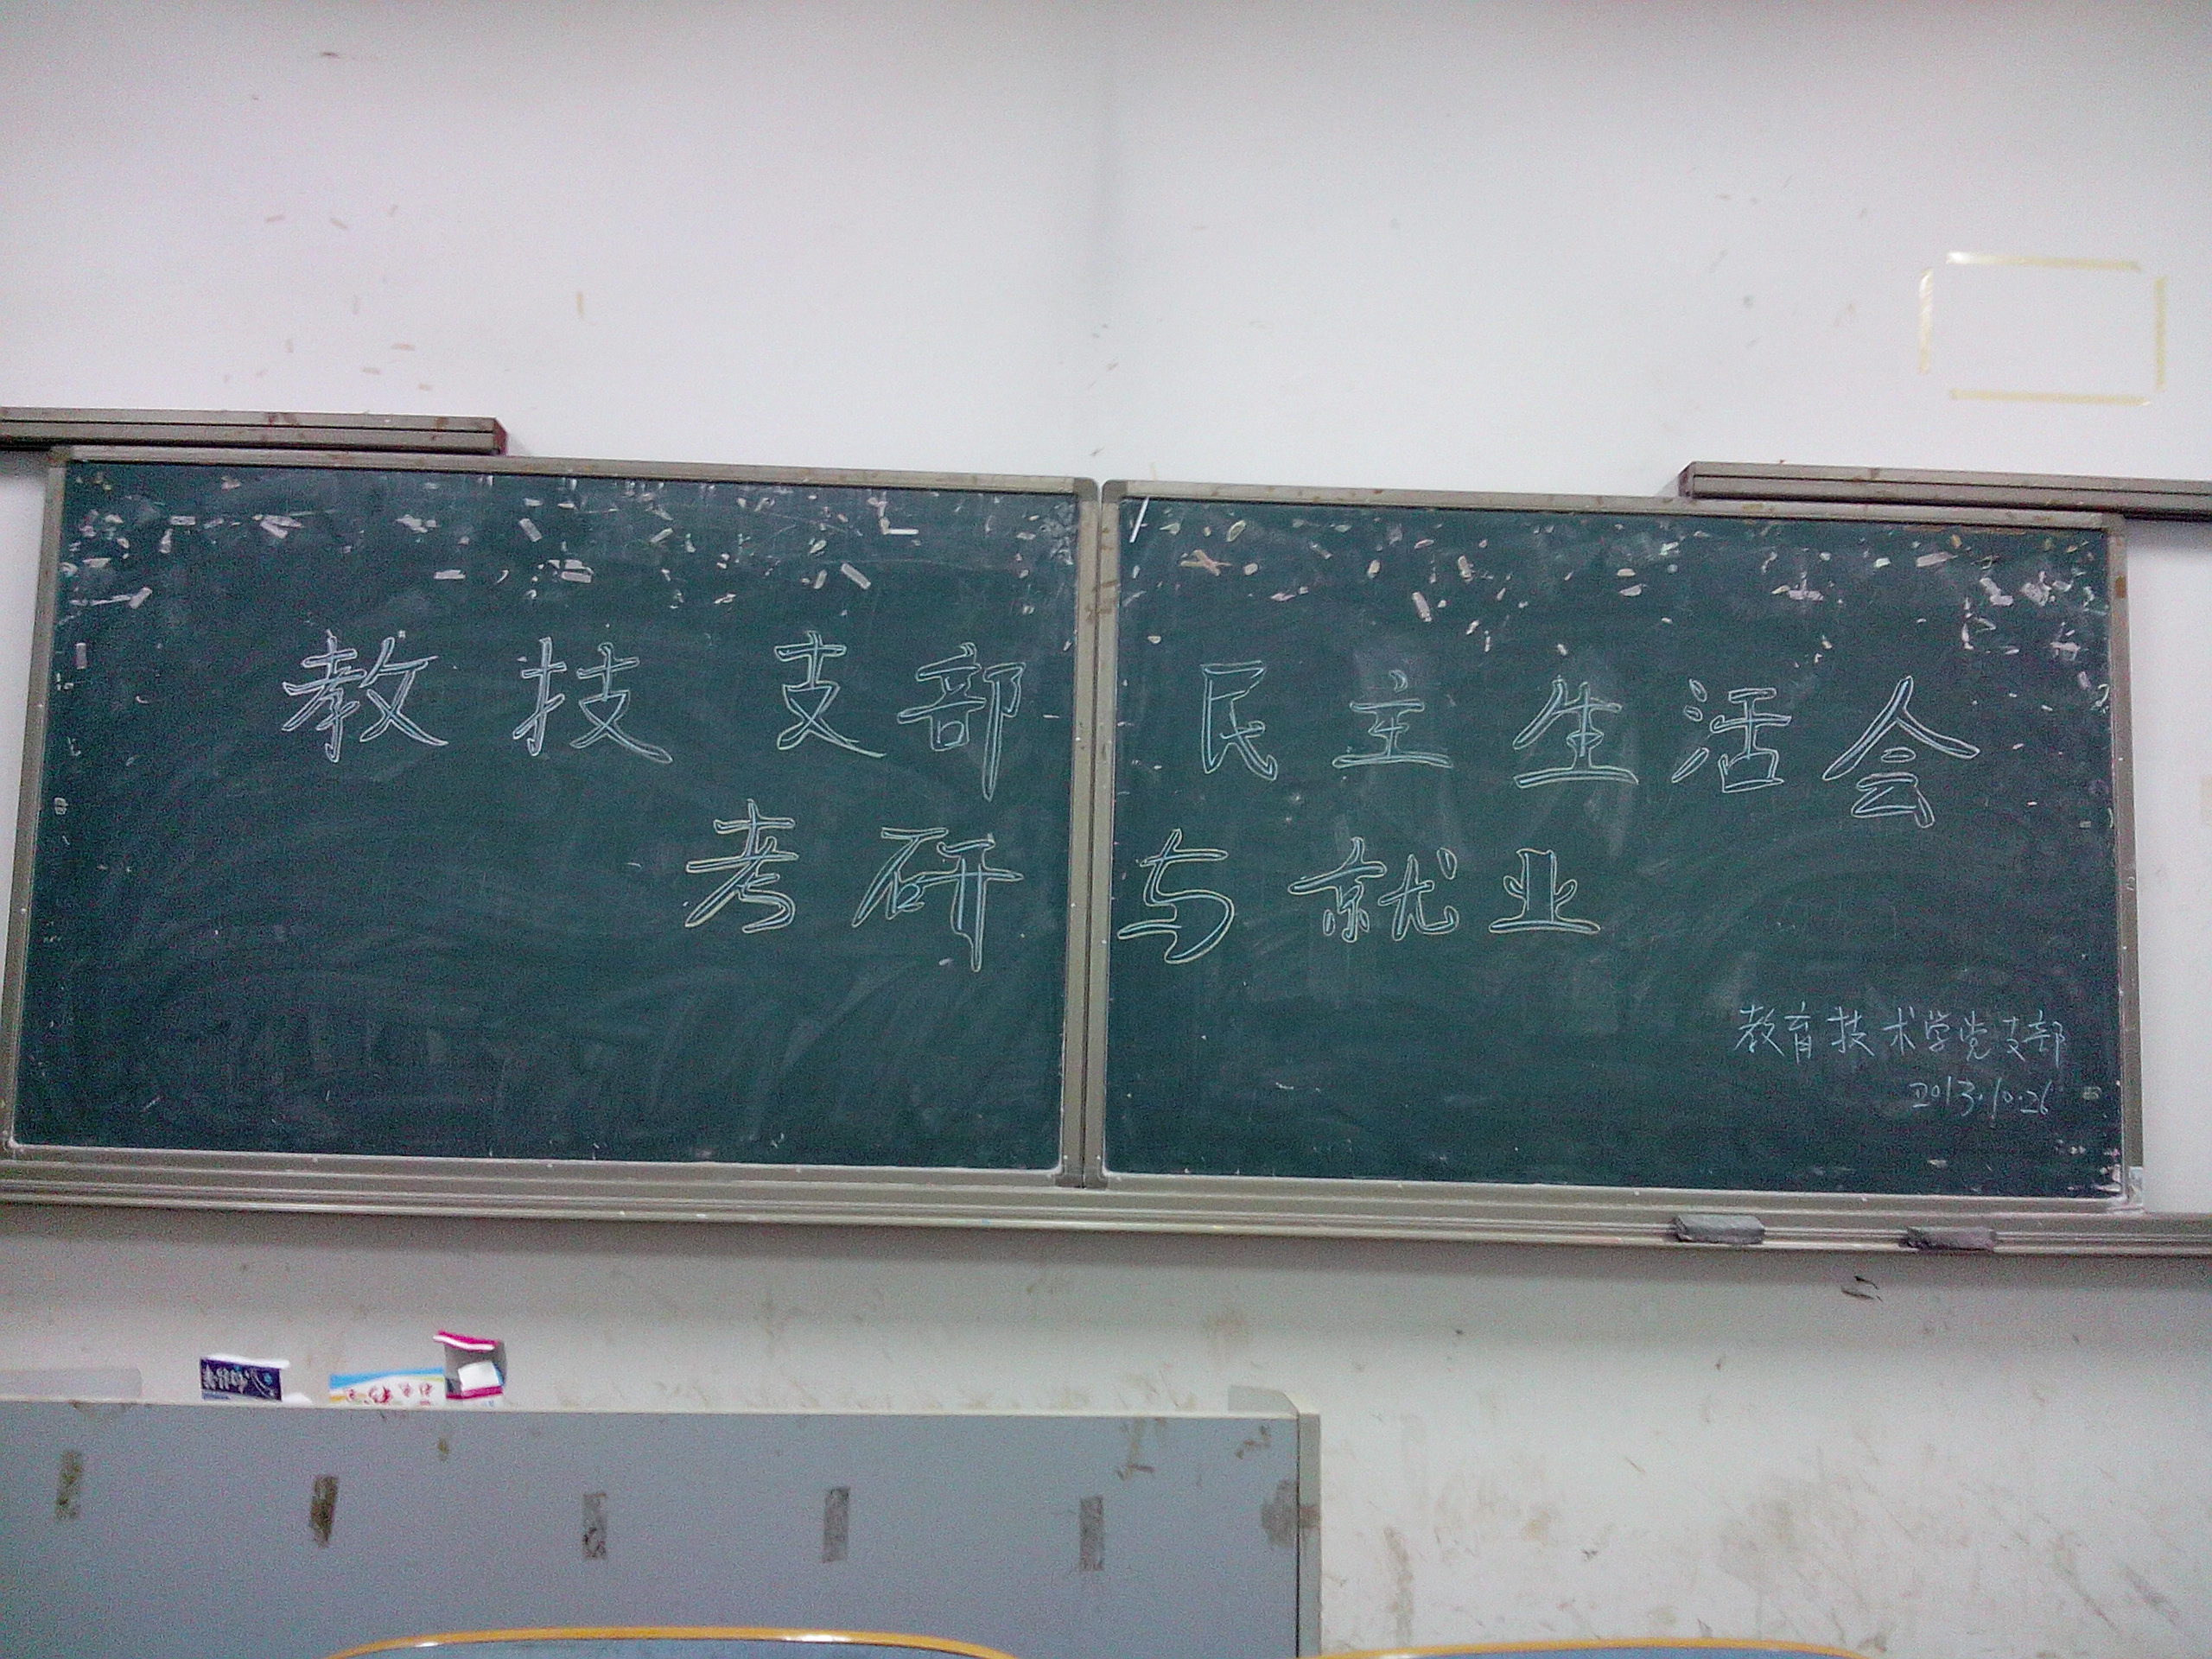 教技支部民主生活会
考研与就业
教育技术学党支部
2013.10.26